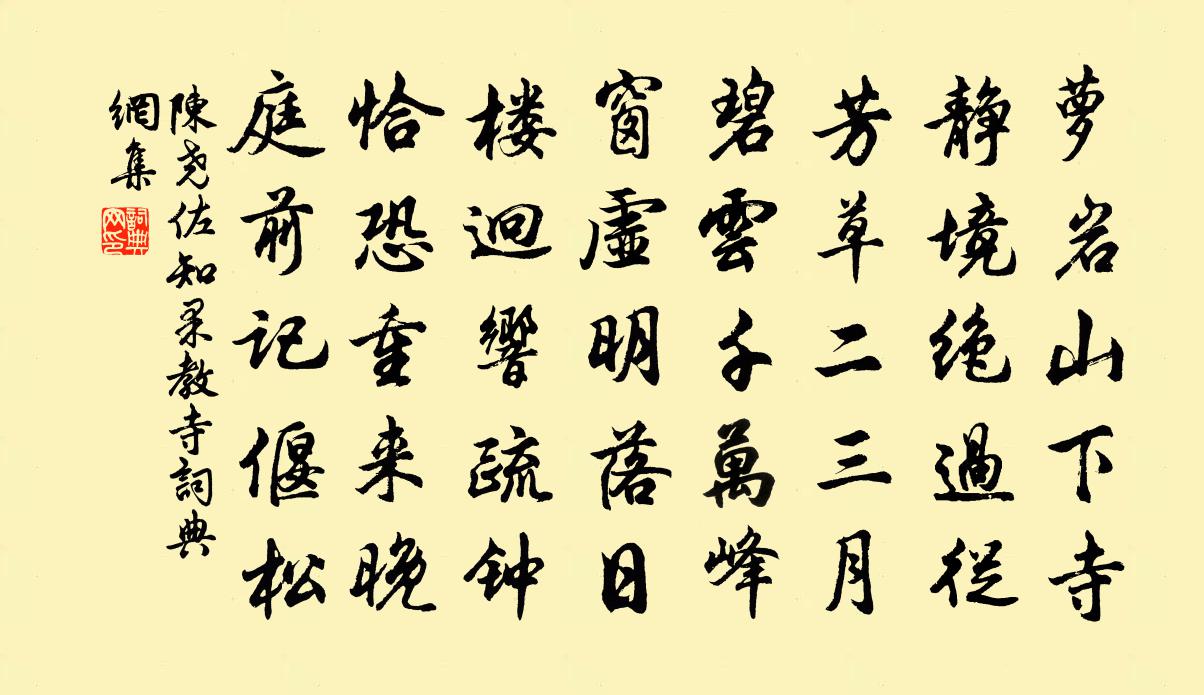 萝岩山下寺
静境绝過從
芳草二三月
碧雲千萬峰
窗虛明落日
楼迥響疏钟
恰恐重来晚
庭前记偃松
陳尧佐知果教寺詞典
網集
詞典網印